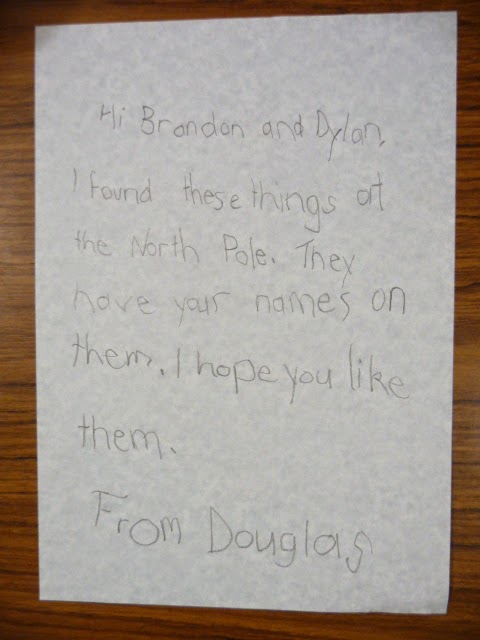 Hi Brandon and Dylan,
I found these things at
the North Pole. They
have your names on
them. I hope you like
them.
From Douglas